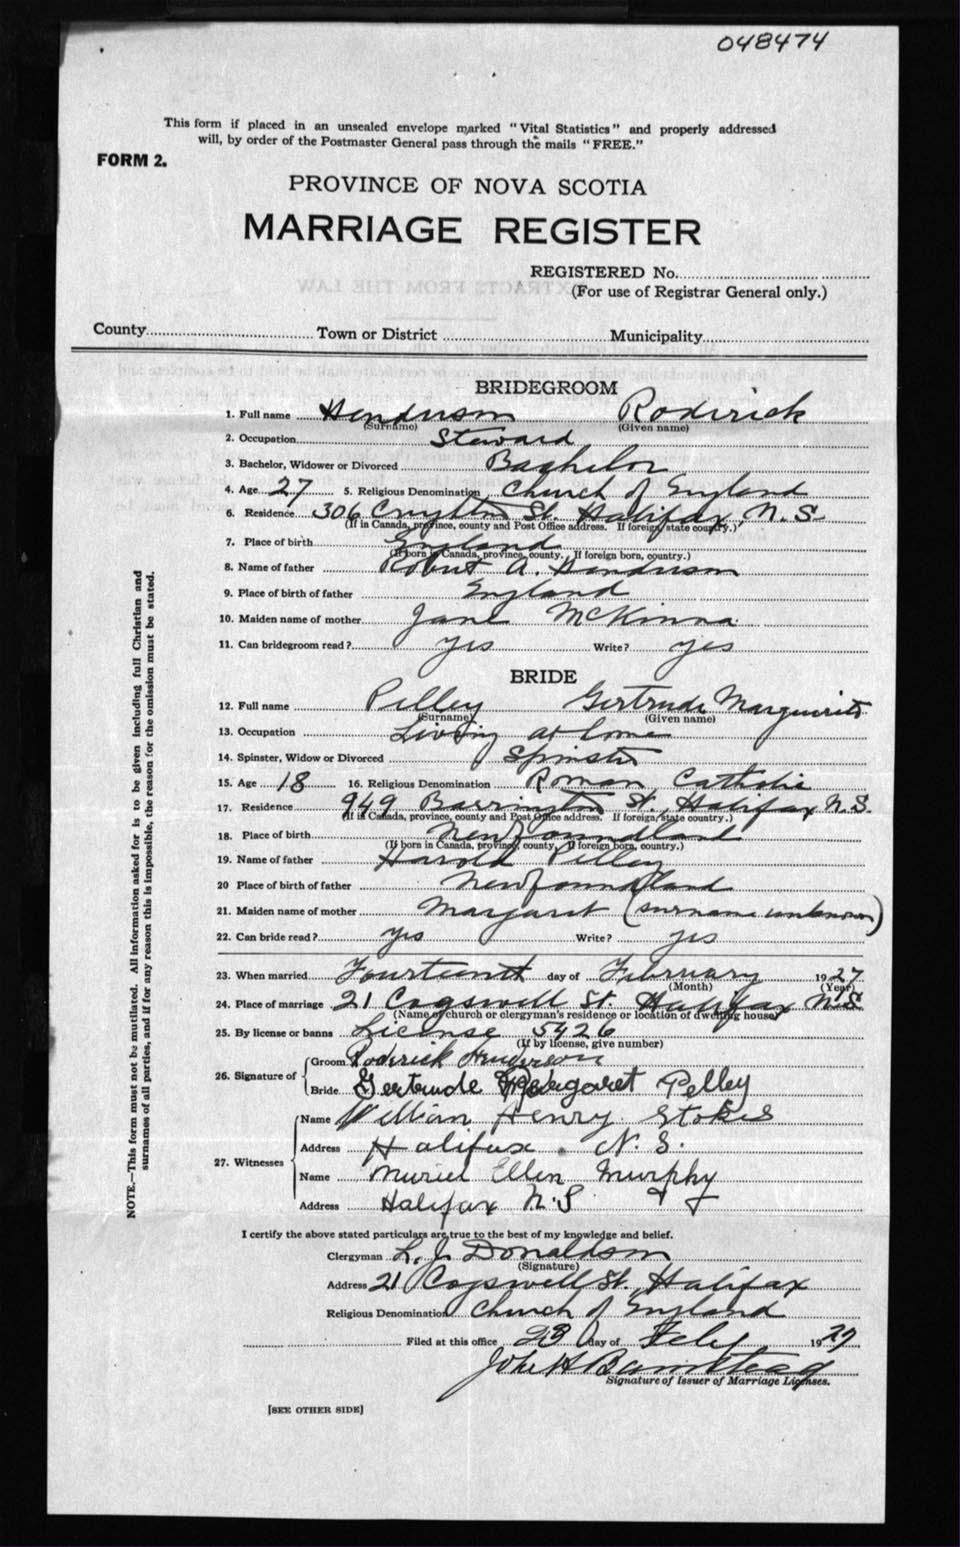 048474
This form if placed in an unsealed envelope marked "Vital Statistics" and properly addressed
will, by order of the Postmaster General pass through the mails "FREE."
FORM 2.
PROVINCE OF NOVA SCOTIA
MARRIAGE REGISTER
REGISTERED No.
(For use of Registrar General only.)
County Town or District Municipality
BRIDEGROOM
1. Full name Henderson Roderick
(Surname) (Given name)
2. Occupation Steward
3. Bachelor, Widower or Divorced Bachelor
4. Age 27 5. Religious Denomination Church of England
6. Residence 306 St. Halifax, N.S.
(If in Canada, province, county and Post Office address. If foreign, state country.)
7. Place of birth England
(If born in Canada, province, county. If foreign born, country.)
8. Name of father Robert A. Henderson
9. Place of birth of father England
10. Maiden name of mother Jane McKinna
11. Can bridegroom read? yes Write? yes
BRIDE
12. Full name Pelley Gertrude Marguerite
(Surname) (Given name)
13. Occupation Living at home
14. Spinster, Widow or Divorced Spinster
15. Age 18 16. Religious Denomination Roman Catholic
17. Residence 949 Barrington St. Halifax N.S.
(If in Canada, province, county and Post Office address. If foreign, state country.)
18. Place of birth Newfoundland
(If born in Canada, province, county. If foreign born, country.)
19. Name of father Harold Pelley
20 Place of birth of father Newfoundland
21. Maiden name of mother Margaret (surname unknown)
22. Can bride read? yes Write? yes
23. When married Fourteenth day of February 1927
(Month) (Year)
24. Place of marriage 21 Cogswell St. Halifax N.S.
(Name of church or clergyman's residence or location of dwelling house)
25. By license or banns License 5426
(If by license, give number)
26. Signature of Groom Roderick Henderson
Bride Gertrude Margaret Pelley
27. Witnesses Name William Henry Stokes
Address Halifax. N.S.
Name Muriel Ellen Murphy
Address Halifax N.S.
I certify the above stated particulars are true to the best of my knowledge and belief.
Clergyman L. J. Donaldson
(Signature)
Address 21 Cogswell St. Halifax
Religious Denomination Church of England
Filed at this office 23 day of Feby 1927
John H Barnstead
Signature of Issuer of Marriage Licenses.
[SEE OTHER SIDE]
NOTE.—This form must not be mutilated. All information asked for is to be given including full Christian and
surnames of all parties, and if for any reason this is impossible, the reason for the omission must be stated.